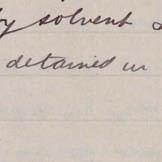 by solvent
detained in